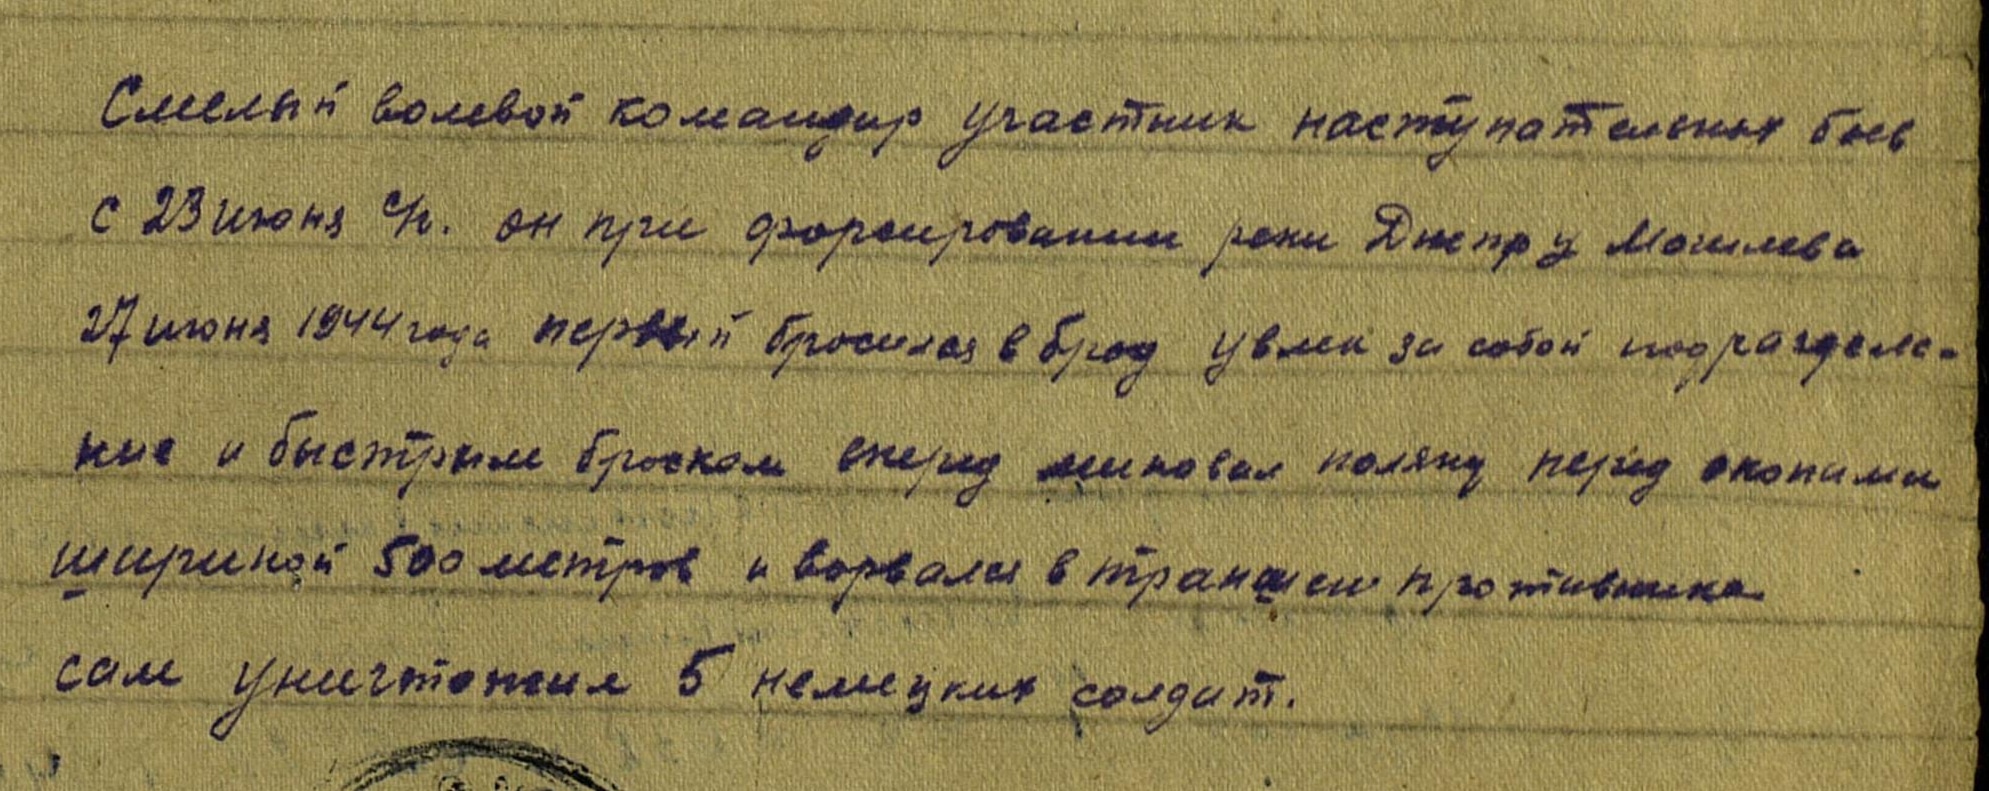 Смелый волевой командир участник наступательных боев
с 23 июня с/г. он при форсировании реки Днепр у Могилева
27 июня 1944 года первый бросился в брод увлек за собой подразделе-
ние и быстрым броском вперед миновал поляну перед окопами
шириной 500 метров и ворвался в траншеи противника
сам уничтожил 5 немецких солдат.